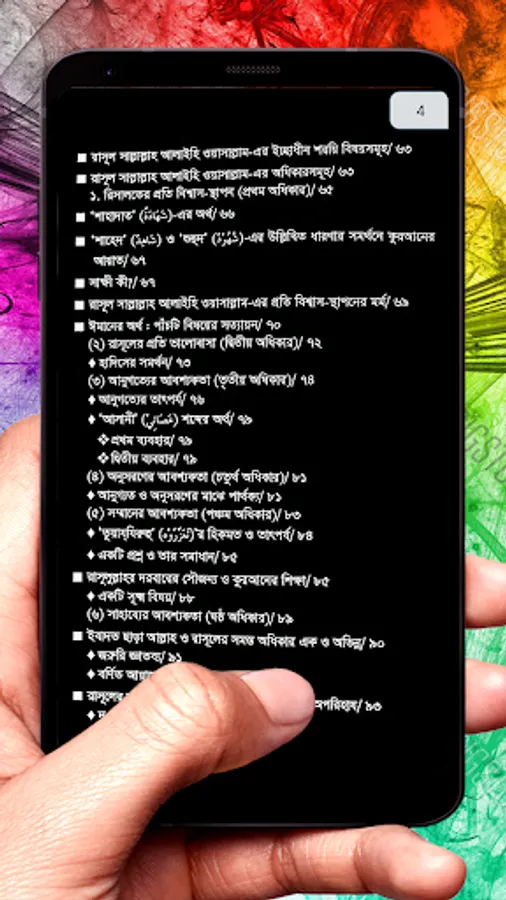 4
■ রাসূল সাল্লাল্লাহু আলাইহি ওয়াসাল্লাম-এর ইচ্ছাধীন শরয়ি বিষয়সমূহ/ ৬৩
■ রাসূল সাল্লাল্লাহু আলাইহি ওয়াসাল্লাম-এর অধিকারসমূহ/ ৬৩
১. রিসালতের প্রতি বিশ্বাস-স্থাপন (প্রথম অধিকার)/ ৬৫
■ 'শাহাদাত' (شَهَادَةٌ)-এর অর্থ/ ৬৬
■ 'শাহেদ' (شَاهِدٌ) ও 'শুহুদ' (شُهُوْدٌ)-এর উল্লিখিত ধারণার সমর্থনে কুরআনের
আয়াত/ ৬৭
■ সাক্ষী কী?/ ৬৭
■ রাসূল সাল্লাল্লাহু আলাইহি ওয়াসাল্লাম-এর প্রতি বিশ্বাস-স্থাপনের মর্ম/ ৬৯
■ ঈমানের অর্থ : পাঁচটি বিষয়ের সত্যায়ন/ ৭০
(২) রাসূলের প্রতি ভালোবাসা (দ্বিতীয় অধিকার)/ ৭২
♦ হাদিসের সমর্থন/ ৭৩
(৩) আনুগত্যের আবশ্যকতা (তৃতীয় অধিকার)/ ৭৪
♦ আনুগত্যের তাৎপর্য/ ৭৬
♦ 'আসানী' (عَصَانِيْ) শব্দের অর্থ/ ৭৯
❖ প্রথম ব্যবহার/ ৭৯
❖ দ্বিতীয় ব্যবহার/ ৭৯
(৪) অনুসরণের আবশ্যকতা (চতুর্থ অধিকার)/ ৮১
♦ আনুগত্য ও অনুসরণের মাঝে পার্থক্য/ ৮১
(৫) সম্মানের আবশ্যকতা (পঞ্চম অধিকার)/ ৮৩
♦ 'তুয়াযযিরুহু' (تُعَزِّرُوْهُ)'র হিকমত ও তাৎপর্য/ ৮৪
♦ একটি প্রশ্ন ও তার সমাধান/ ৮৫
■ রাসূলুল্লাহর দরবারের সৌজন্য ও কুরআনের শিক্ষা/ ৮৫
♦ একটি সূক্ষ্ম বিষয়/ ৮৮
(৬) সাহায্যের আবশ্যকতা (ষষ্ঠ অধিকার)/ ৮৯
■ ইবাদত ছাড়া আল্লাহ ও রাসূলের সমস্ত অধিকার এক ও অভিন্ন/ ৯০
♦ জরুরি জ্ঞাতব্য/ ৯১
♦ বর্ণিত
■ রাসূলের অপরিহার্য/ ৯৩